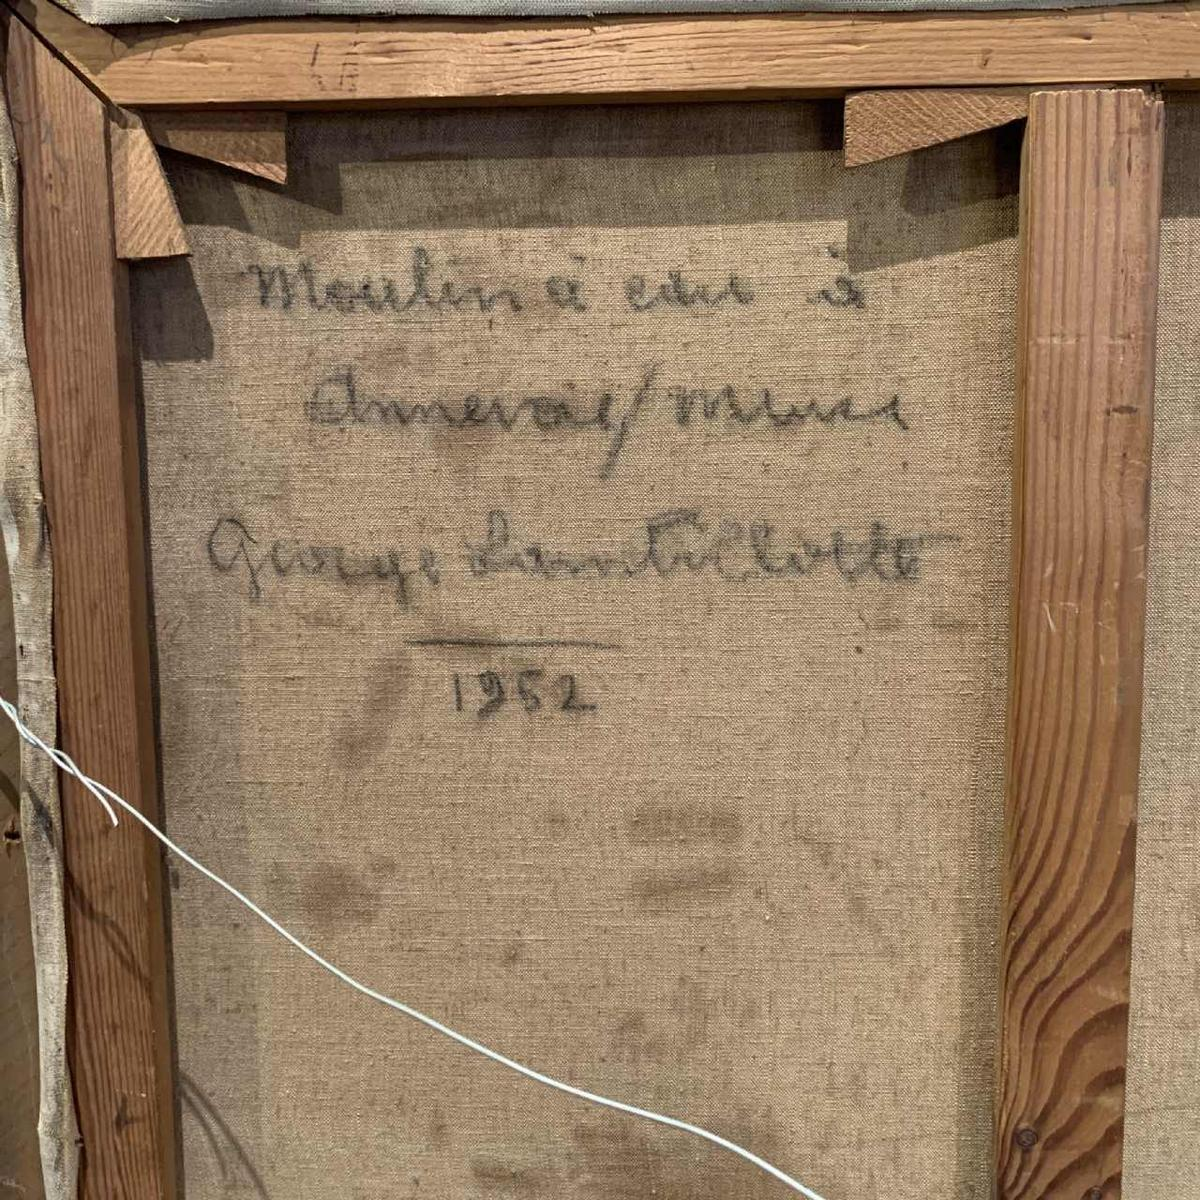 Moulin à eau à
Annevoie/Meuse
George Lambillotte
1952